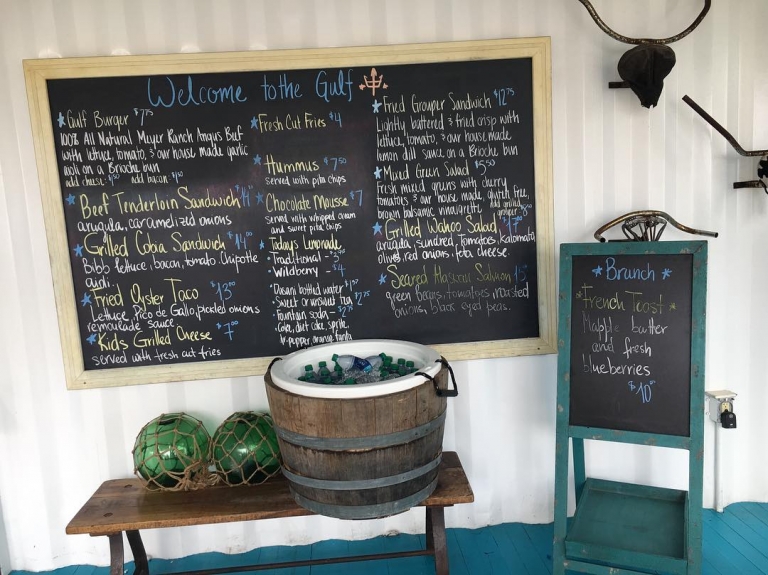 Welcome to the Gulf
Gulf Burger $7.75
100% All Natural Meyer Ranch Angus Beef
with lettuce, tomato, & our house made garlic
aioli on a Brioche bun
add cheese add bacon
Beef Tenderloin Sandwich
arugula, caramelized onions
Grilled Cobia Sandwich $14.00
Bibb lettuce, bacon, tomato, Chipotle
Fried Oyster Taco
Lettuce, Pico de Gallo, pickled onions
remoulade sauce
Kids Grilled Cheese
served with fresh cut fries
Fresh Cut Fries $4
Hummus $7.50
served with pita chips
Chocolate Mousse $7
served with whipped cream
and sweet pita chips
Today's Lemonade
Traditional
Wildberry - $4
Dasani bottled water
Sweet or unsweet tea
Fountain soda
Coke, diet coke, sprite,
Fried Grouper Sandwich $12.75
Lightly battered & fried crisp with
lettuce, tomato, & our house made
lemon dill sauce on a Brioche bun
Mixed Green Salad $5.50
Fresh mixed greens with cherry
tomatoes & our house made, gluten free,
brown balsamic vinaigrette
Grilled Wahoo Salad
arugula, sundried tomatoes, Kalamata
olives, red onions, feta cheese
Seared Salmon
green beans, tomatoes, roasted
onions, black eyed peas.
Brunch
French Toast
Maple butter
and fresh
blueberries
$10